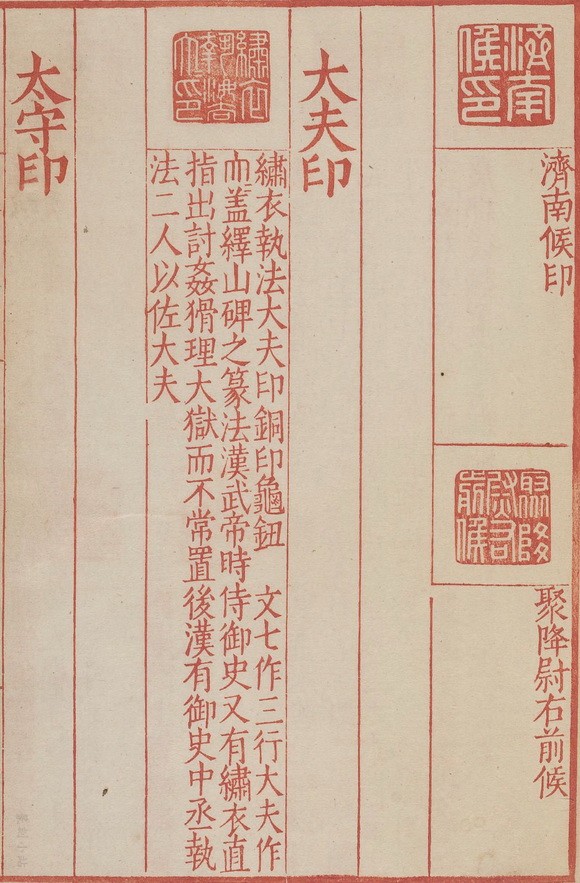 濟南候印
濟南候印
聚降尉右前候
聚降尉右前候
大夫印
繡衣執法大夫印
繡衣執法大夫印銅印龜鈕　文七作三行大夫作
蓋繹山碑之篆法漢武帝時侍御史又有繡衣直
指出討姦猾理大獄而不常置後漢有御史中丞執
法二人以佐大夫
太守印